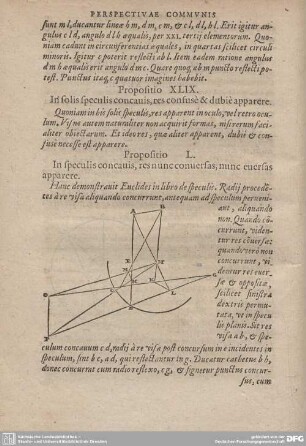 PERSPECTIVAE COMMVNIS
sunt m l, ducantur lineæ b m, d m, c m, & c l, d l, b l. Erit igitur an-
gulus c l d, angulo d l b æqualis, per XXI. tertij elementorum. Quo-
niam cadunt in circunferentias equales, in quartas scilicet circuli
minoris. Igitur c poterit reflecti ab l. item eadem ratione angulus
d m b æqualis erit angulo d m c. Quare quoq; ab m puncto reflecti po-
test. Punctus itaq; c quatuor imagines habebit.
Propositio XLIX.
In solis speculis concauis, res confusè & dubiè apparere.
Quoniam in his solis speculis, res apparent in oculo, vel retro ocu-
lum, Visus autem naturaliter non acquirit formas, nisi rerum faci-
aliter obiectarum. Et ideo res, quæ aliter apparent, dubiè & con-
fusè necesse est apparere.
Propositio L.
In speculis concauis, res nunc conuersas, nunc euersas
apparere.
Hanc demonstrauit Euclides in libro de speculis. Radij proceden-
tes à re visa aliquando concurrunt, antequam ad speculum perueni-
ant, aliquando
non. Quando cõ-
currunt, viden-
tur res cõuersæ:
quando verò non
concurrunt, vi-
dentur res euer-
sæ & opposita,
scilicet sinistra
dextris permu-
tata, vt in specu-
lis planis. Sit res
visa a b, & spe-
culum concauum c d, radij à re visa post concursum in e incidentes in
speculum, sint b c, a d, qui reflectantur in g. Ducatur cathetus b h,
donec concurrat cum radio reflexo, c g, & signetur punctus concur-
sus, cum
A
B
E
G
D
F